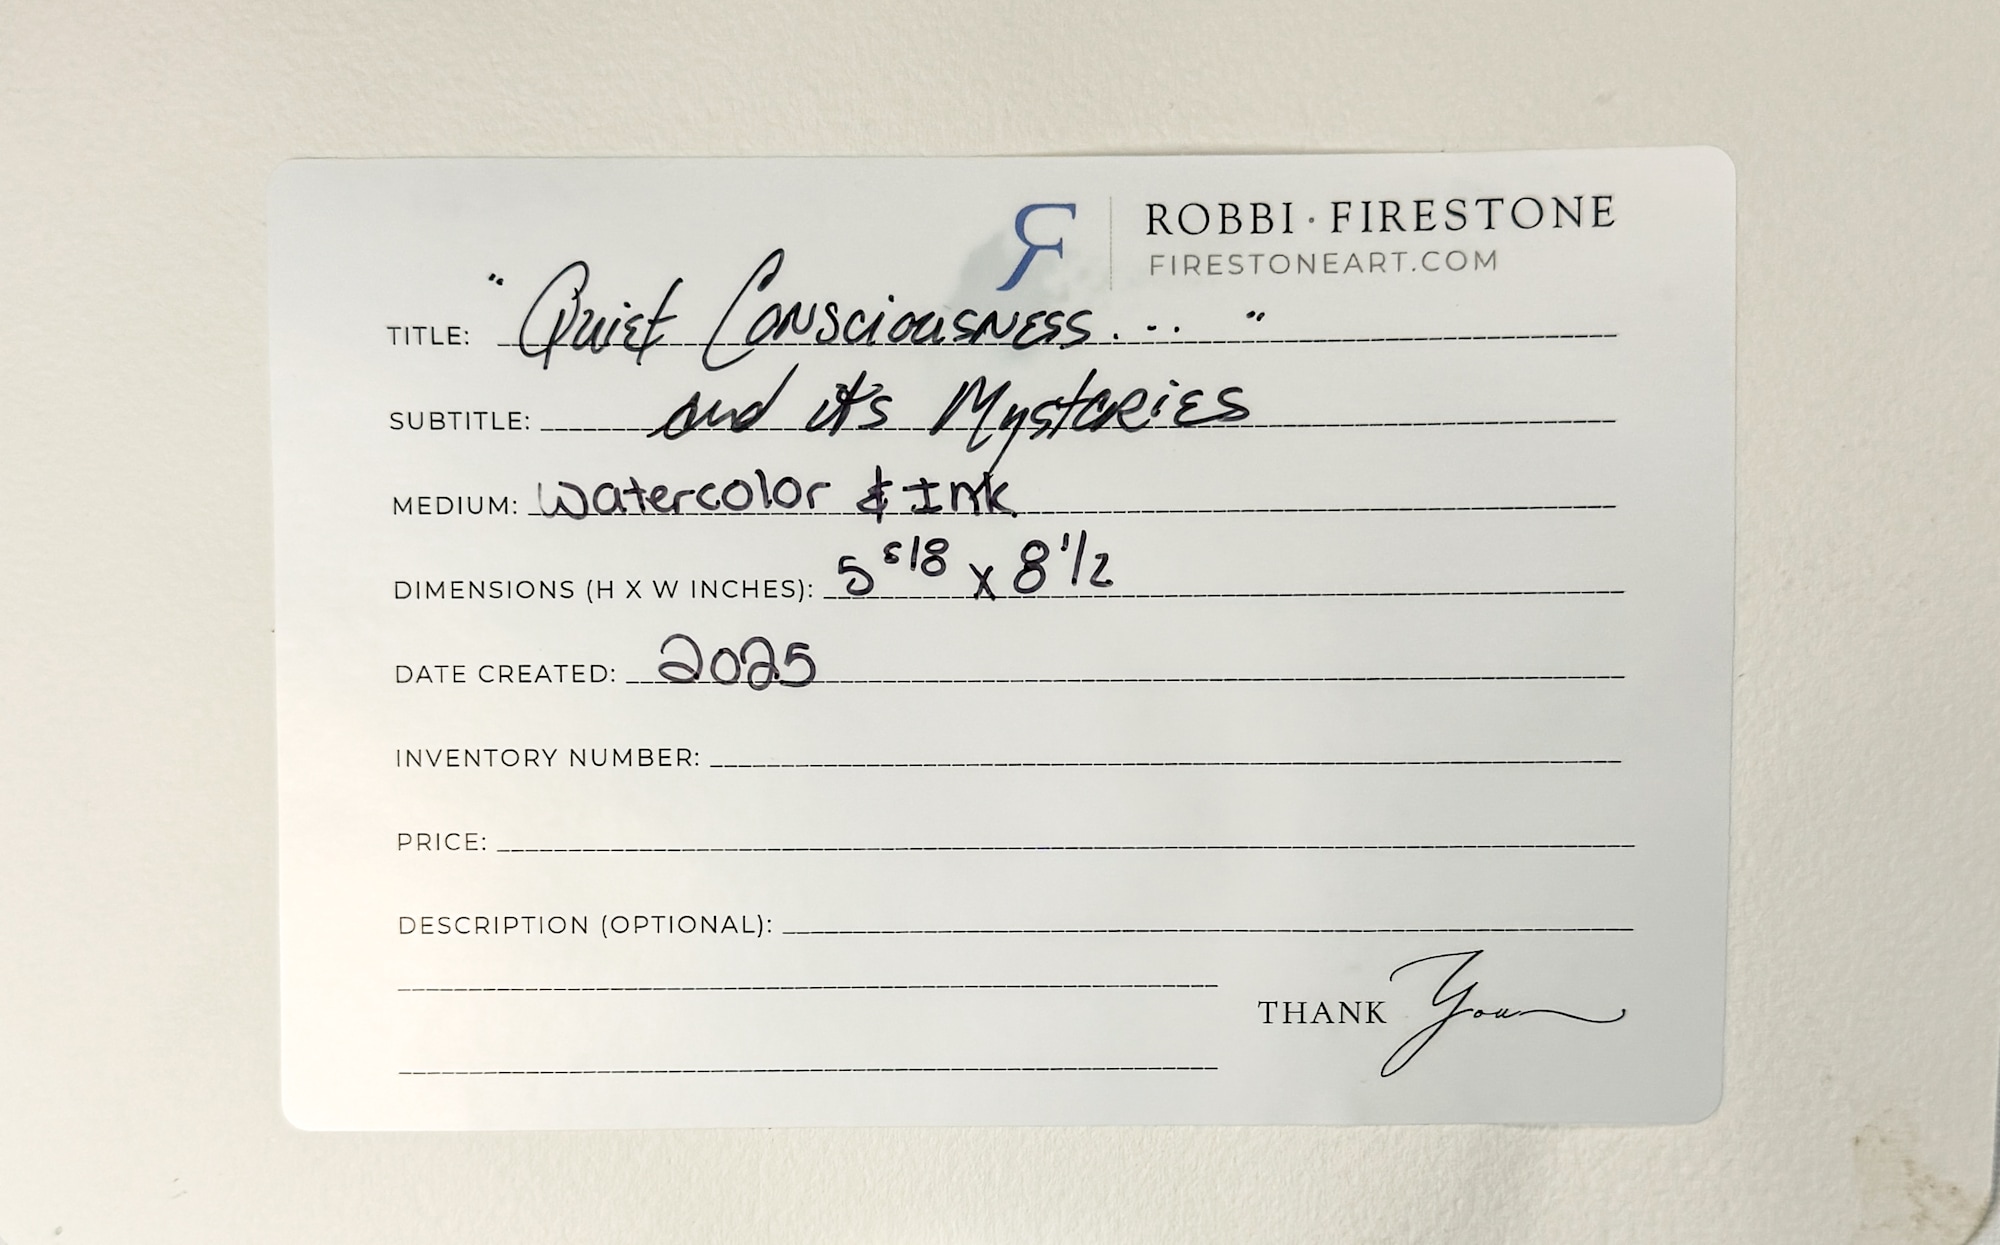 ROBBI · FIRESTONE
FIRESTONEART.COM
TITLE: "Quiet Consciousness...."
SUBTITLE: and it's Mysteries
MEDIUM: Watercolor & Ink
DIMENSIONS (H X W INCHES): 5 5/8 x 8 1/2
DATE CREATED: 2025
INVENTORY NUMBER:
PRICE:
DESCRIPTION (OPTIONAL):
THANK You